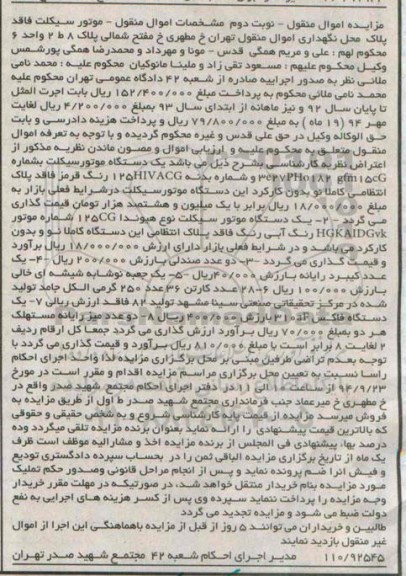 مزایـده اموال منقول - نوبت دوم مشخصات اموال منقول - موتور سیکلت فاقد
پلاک محل نگهداری اموال منقول تهران خ مطهری خ مفتح شمالی پلاک ۸ ط ۲ واحد ۶
محکوم لهم : علی و مریم همگی قدس - مونا و مهرداد و محمدرضا همگی پورشمس
وکیـل محکـوم علیهم : مسعود تقی زاد و ملینـا مانوکیان محکوم علیـه : محمد نامی
ملائـی نظر به صدور اجراییه صادره از شعبـه ۴۲ دادگاه عمومـی تهران محکوم علیه
محمـد نامی ملائی محکوم به پرداخت مبلغ ۱۵۲/۴۰۰/۰۰۰ ریال بابت اجرت المثل
تا پایان سـال ۹۲ و نیز ماهانه از ابتدای سـال ۹۳ بمبلغ ۴/۲۰۰/۰۰۰ ریال لغایت
مهـر ۹۴ (۱۹ ماه ) به مبلغ ۷۹/۸۰۰/۰۰۰ ریال و پرداخت هزینه دادرسی و بابت
حـق الوکاله وکیل در حق علی قدس و غیره محکوم گردیده و با توجه به تعرفه اموال
منقـول متعلـق به محکـوم علیـه و ارزیابی اموال و مصـون ماندن نظریـه مذکور از
اعتراض نظریه کارشناسی بشـرح ذیل می باشد یک دستگاه موتورسیکلت بشماره
و شماره بدنـه 125HIVACG رنـگ قرمز فاقد پلاک
انتظامـی کاملا نو بدون کارکرد این دستگاه موتورسـیکلت درشـرایط فعلی بازار به
مبلغ ۱۸/۰۰۰/۰۰۰ ریال برابر با یک میلیون و هشتصد هزار تومان قیمت گذاری
مـی گـردد - ۲- یـک دستگاه موتور سـیکلت نوع هیونـدا 125CG شماره موتور
HGKAIDGvk رنـگ آبـی رنـگ فاقـد پـلاک انتظامی این دستگاه کاملا نـو و بدون
کارکرد می باشـد و در شـرایط فعلی بازار دارای ارزش ۱۸/۰۰۰/۰۰۰ ریال برآورد
و قیمـت گـذاری می گردد -۳- دو عدد صندلی بـارزش ۲۰۰/۰۰۰ ریال -۴- یک
عـدد کیبـرد رایانه بـارزش ۴۰/۰۰۰ریال -۵- یک جعبه نوشابه شیشه ای خالی
بارزش ۱۰۰/۰۰۰ ریال ۶-۲۸ عـدد کارتن ۳۶ عدد ۲۵۰ گرمی الکـل جامد تولید
شده در مرکـز تحقیقاتی صنعتی سینا مشهد تولید ۸۲ فاقـد ارزش ریالی ۷- یک
هر دو بمبلغ ۷۰/۰۰۰ ریال بـرآورد ارزش گذاری می گردد جمعـا کل ارقام ردیف
۲ لغایـت ۸ برابر اسـت با مبلغ ۸۱۰/۰۰۰ ریال بـرآورد و قیمت گذاری می گردد با
توجـه بعـدم تراضی طرفین مبنـی بر محل برگزاری مزایده لذا واحـد اجرای احکام
راسـا نسـبت به تعیین محل برگزاری مراسـم مزایده اقدام و مقرر اسـت در مورخ
۹۴/۹/۲۳ از سـاعت ۱۰ الـی ۱۱ در دفتر اجرای احکام مجتمع شهید صدر واقع در
خ مطهـری خ میرعماد جنب فرمانداری مجتمع شهید صـدر ط اول از طریق مزایده به
فروش میرسـد مزایده از قیمت پایه کارشناسـی شـروع و به شخص حقیقی و حقوقی
که بالاترین قیمت پیشنهادی را ارائـه نمایـد بعنوان برنده مزایده تلقی میگردد وده
درصد بهاء پیشنهادی فی المجلس از برنده مزایده اخذ و مشارالیه موظف است ظرف
یک ماه از تاریخ برگزاری مزایده الباقی ثمن را در بحساب سپرده دادگستری تودیع
و فیـش انـرا ضـم پرونده نماید و پـس از انجام مراحل قانونی وصـدور حکم تملیک
مـورد مزایـده بنام خریدار منتقل خواهد شـد، در صورتیکه در مهلت مقرر خریدار
وجـه مزایده را پرداخت ننماید سـپرده وی پس از کسـر هزینه هـای اجرایی به نفع
دولت ضبط می شود و مزایده تجدید می گردد
طالبین و خریداران می توانند ۵ روز از قبل از مزایده باهماهنگی این اجرا از اموال
غیر منقول بازدید نمایند
۱۱۰/۹۲۵۴۵ مدیر اجرای احکام شعبه ۴۲ مجتمع شهید صدر تهران